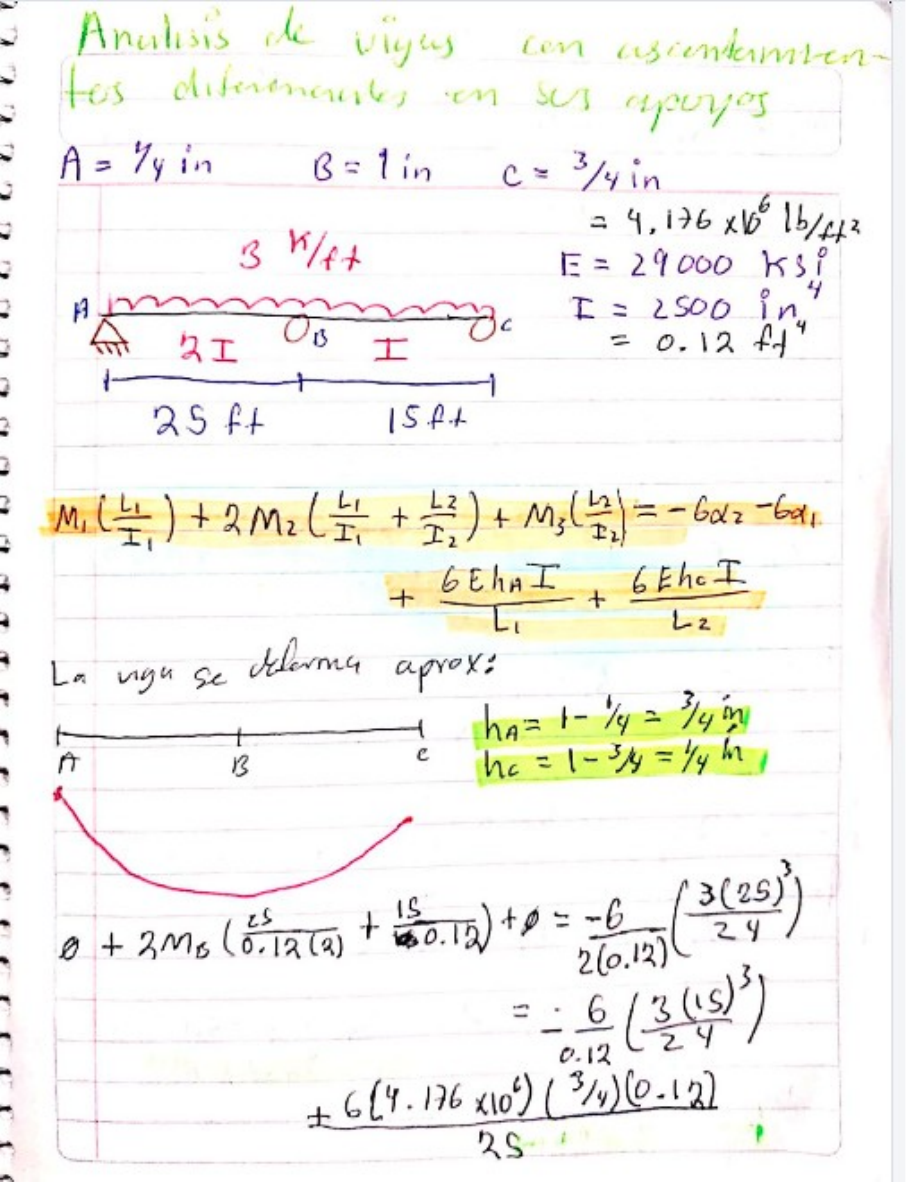 Analisis de vigas con ascentamien-
tos diferenciales en sus apoyos
A = 1/4 in B = 1 in C = 3/4 in
= 4.176 x10⁶ lb/ft²
3 K/ft
E = 29000 Ksi
A B C
I = 2500 in⁴
2I I
= 0.12 ft⁴
25 ft 15 ft
M₁(L₁/I₁) + 2M₂(L₁/I₁ + L₂/I₂) + M₃(L₂/I₂) = -6α₂ -6α₁
+ 6EhAI/L₁ + 6EhcI/L₂
La viga se deforma aprox:
hA = 1 - 1/4 = 3/4 in
A B C
hc = 1 - 3/4 = 1/4 in
ø + 2MB (25/0.12(2) + 15/0.12) + ø = -6/2(0.12) (3(25)³/24)
= - 6/0.12 (3(15)³/24)
+ 6(4.176 x10⁶)(3/4)(0.12)/25